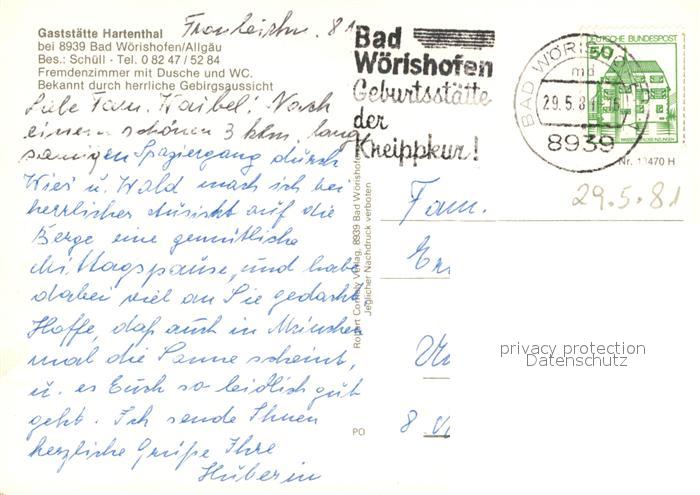 Gaststätte Hartenthal
bei 8939 Bad Wörishofen/Allgäu
Bes.: Schüll · Tel. 0 82 47 / 52 84
Fremdenzimmer mit Dusche und WC.
Bekannt durch herrliche Gebirgsaussicht
81
Liebe Fam. Haibel! Nach
einem schönen 3 lang
samigen Spaziergang durch
Wies u. Wald mach ich bei
herrlicher Aussicht auf die
Berge eine gemütliche
Mittagspause, und habe
dabei viel an Sie gedacht.
Hoffe, daß auch in München
mal die Sonne scheint,
u. es Euch so leidlich gut
geht. Ich sende Ihnen
herzliche Grüße Ihre
Huberin
Bad
Wörishofen
Geburtsstätte
der
Kneippkur!
BAD WÖRISHOFEN
29.5.81
8939
DEUTSCHE BUNDESPOST
50
Nr. 13470 H
29.5.81
Verlag, 8939 Bad Wörishofen
Jeglicher Nachdruck verboten
Fam.
8
PO
privacy protection
Datenschutz